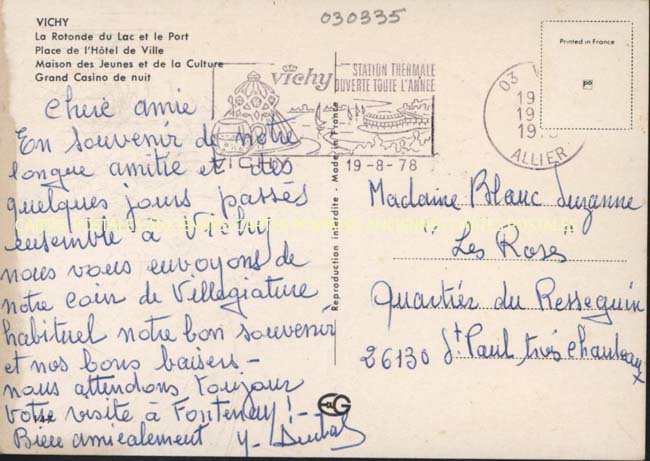 030335
VICHY
La Rotonde du Lac et le Port
Place de l'Hôtel de Ville
Maison des Jeunes et de la Culture
Grand Casino de nuit
Printed in France
Vichy
STATION THERMALE
OUVERTE TOUTE L'ANNÉE
VICHY
19-8-78
03
19
19
19
ALLIER
Chère amie
En souvenir de notre
longue amitié et des
quelques jours passés
ensemble à Vichy
nous vous envoyons de
notre coin de Villégiature
habituel notre bon souvenir
et nos bons baisers -
nous attendons toujours
votre visite à Fontenay ! -
Bien amicalement Y.
Reproduction interdite - Made in France
Madame Blanc Suzanne
"Les Roses"
Quartier du Resseguin
26130 St Paul trois chateaux